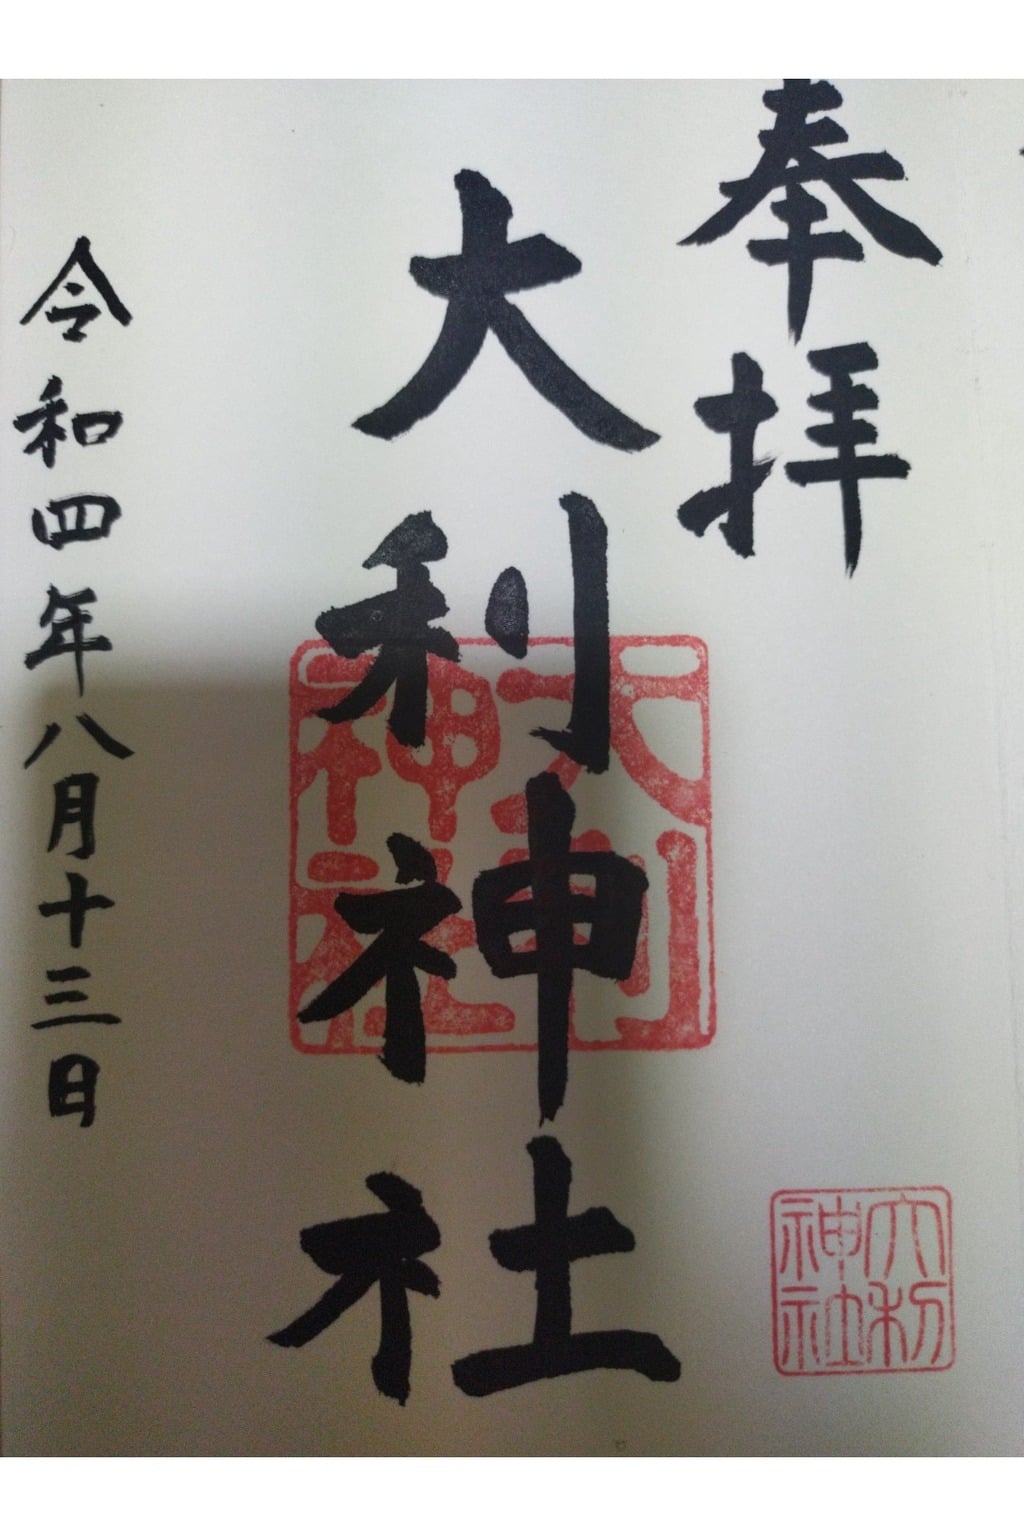 奉拝
大利神社
令和四年八月十三日
大利神社
大利神社